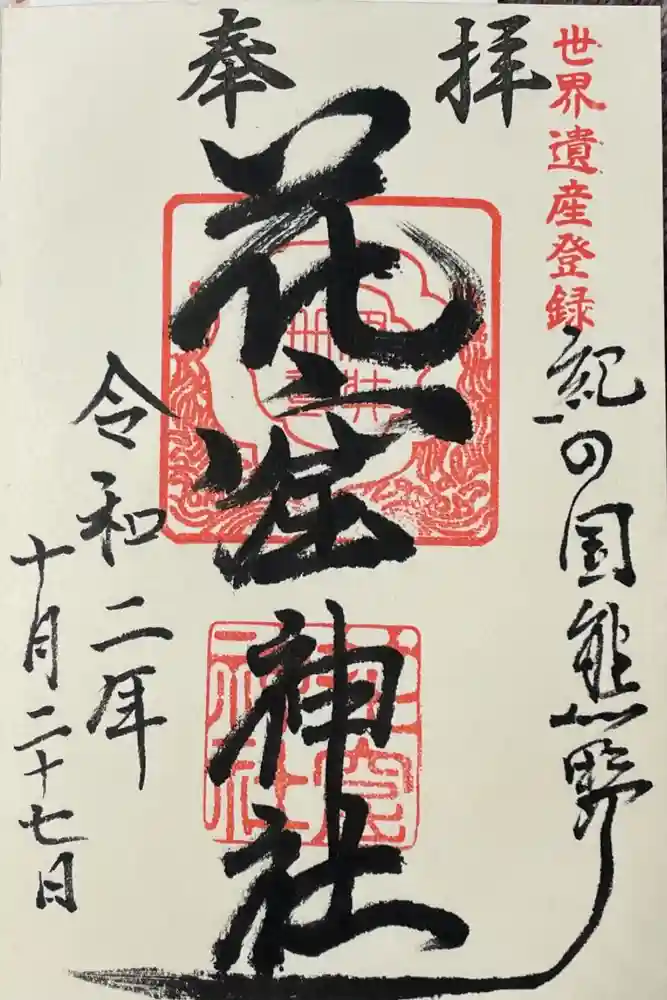 奉拝
世界遺産登録
紀の国熊野
花窟神社
令和二年
十月二十七日